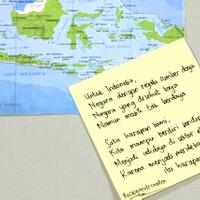 Untuk Indonesia,
Negara dengan segala sumber daya
Negara yang disebut kaya
Namun masih tak berdaya
Satu harapan kami,
Kita mampu berdiri sendiri
Menjadi
Karena menjadi merdeka
itu harapan